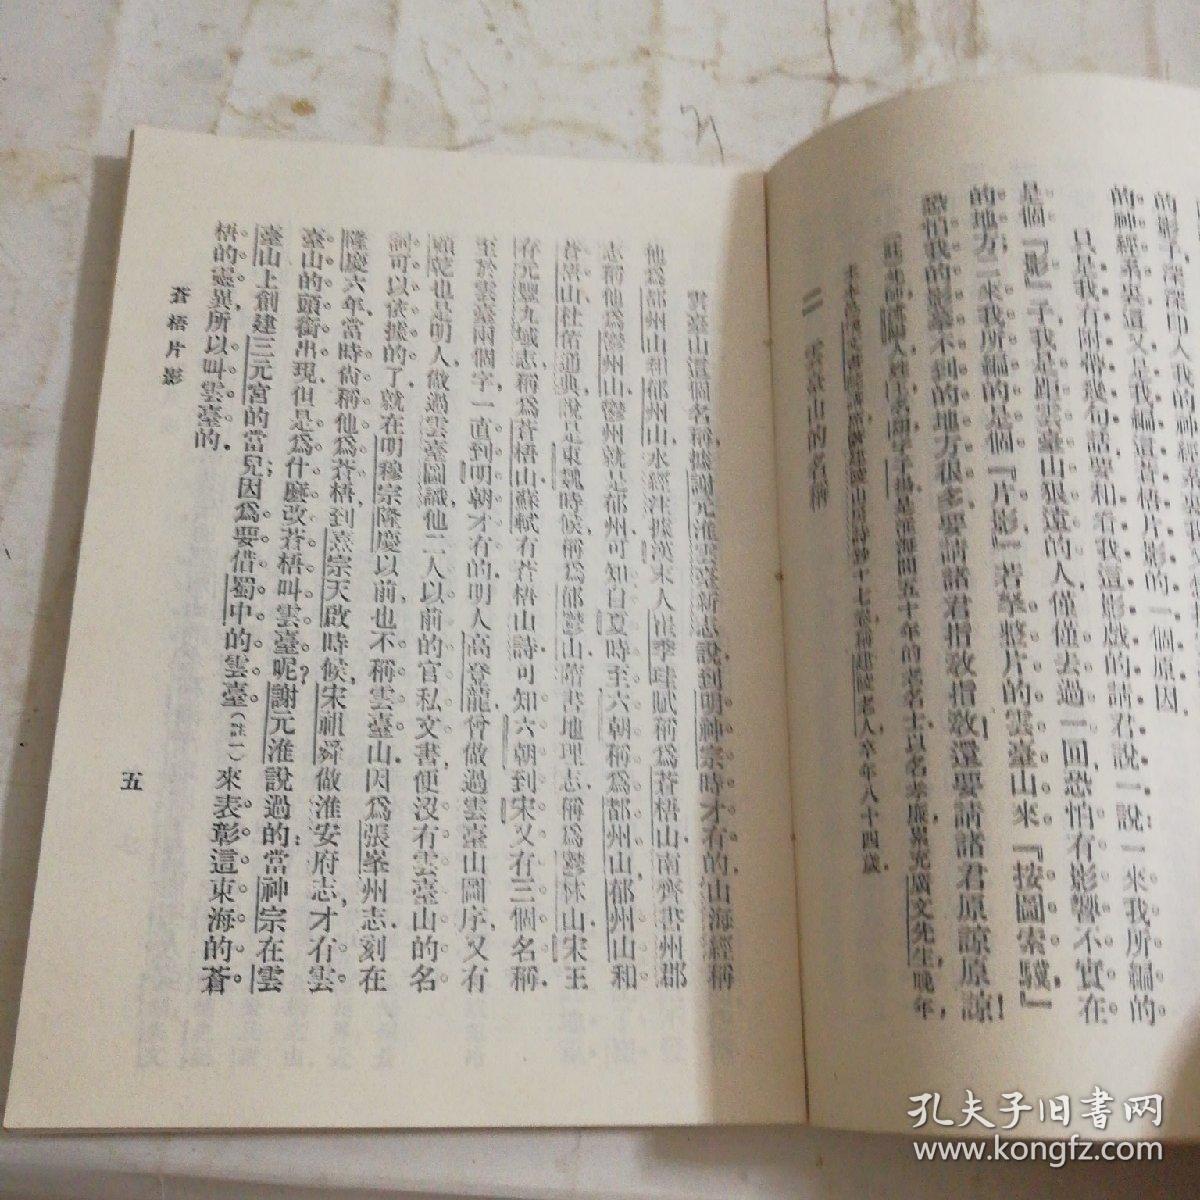 的影子，深深印入我的神經
的神經系裏；這又是我編這蒼梧片影的一個原因。
只是我有附帶幾句話，要和看我這影戲的諸君說一說：一來我所編的
是個『影』子，我是距雲臺山狠遠的人，僅僅去過一回，恐怕有影響不實在
的地方；二來我所編的是個『片影』，若拿整片的雲臺山來『按圖索驥』
恐怕我的影摹不到的地方很多，要請諸君指教指教！還要請諸君原諒原諒！
人，姓
是淮海間五十年的老名士，以名孝廉累充廣文先生，晚年，
老人，卒年八十四歲。
二　雲臺山的名稱
雲臺山這個名稱，據謝元淮雲臺新志說，到明神宗時才有的，山海經稱
他爲都州山和郁州山，水經注據漢末人崔季珪賦，稱爲蒼梧山，南齊書州郡
志稱他爲鬱州山，鬱州就是郁州，可知自夏時至六朝，稱爲都州山，郁州山和
蒼梧山，杜佑通典說是東魏時候，稱爲郁鬱山，隋書地理志，稱爲鬱林山，宋王
存元豐九域志，稱爲蒼梧山，蘇軾有蒼梧山詩，可知六朝到宋，又有三個名稱，
至於雲臺兩個字，一直到明朝才有的，明人高登龍曾做過雲臺山圖序，又有
顧乾也是明人，做過雲臺圖識，他二人以前的官私文書，便沒有雲臺山的名
詞可以依據的了，就在明穆宗隆慶以前，也不稱雲臺山，因爲張峯州志，刻在
隆慶六年，當時尙稱他爲蒼梧，到熹宗天啟時候，宋祖舜做淮安府志，才有雲
臺山的頭銜出現，但是爲什麽改蒼梧叫雲臺呢？謝元淮說過的：當神宗在雲
臺山上創建三元宮的當兒，因爲要借蜀中的雲臺（註一）來表彰這東海的蒼
梧的靈異，所以叫雲臺的，
蒼梧片影
五
孔夫子旧書网
www.kongfz.com